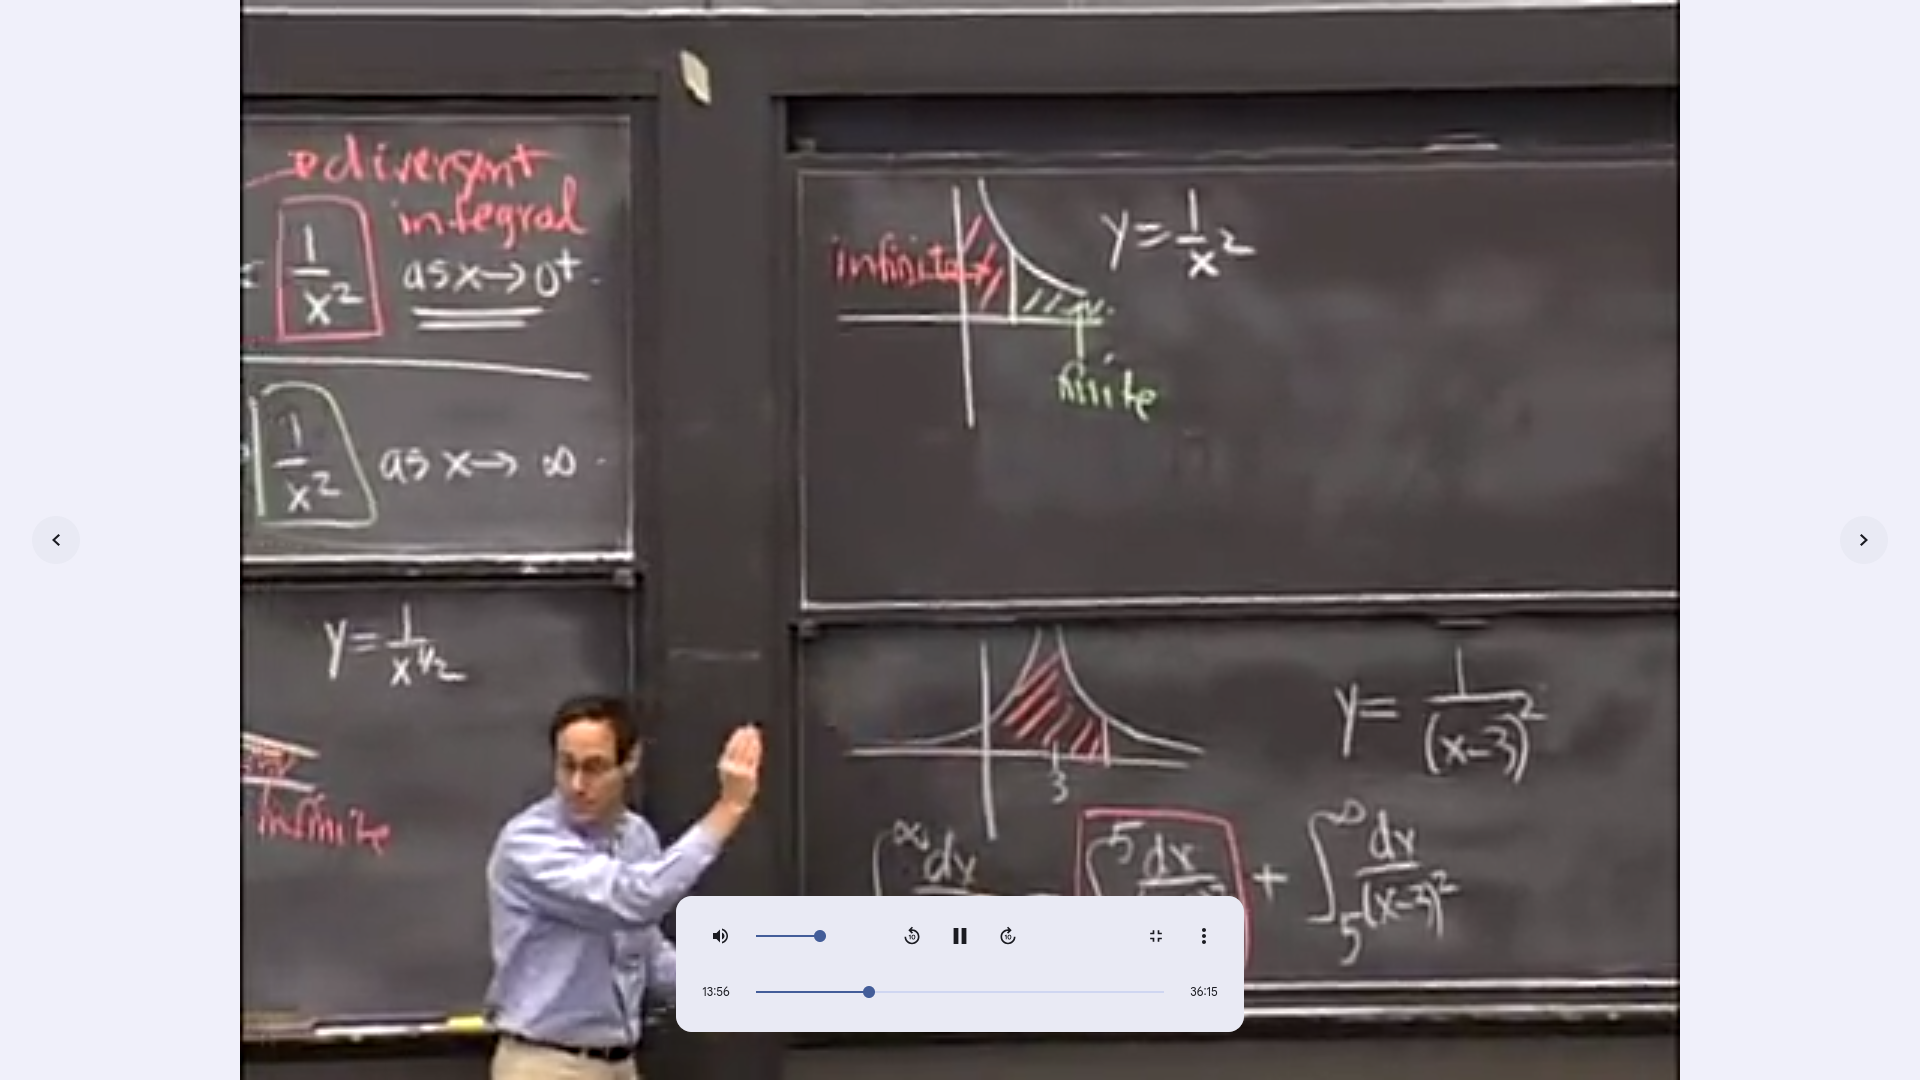 divergent
integral
1
x²
as x→0⁺
1
x²
as x→ ∞
y=1/x^½
infinite
y=1/x²
infinite
finite
y=1/(x-3)²
3
∞ dx
∫ 5 dx + ∫ 5 ∞ dx/(x-3)²
13:56
36:15